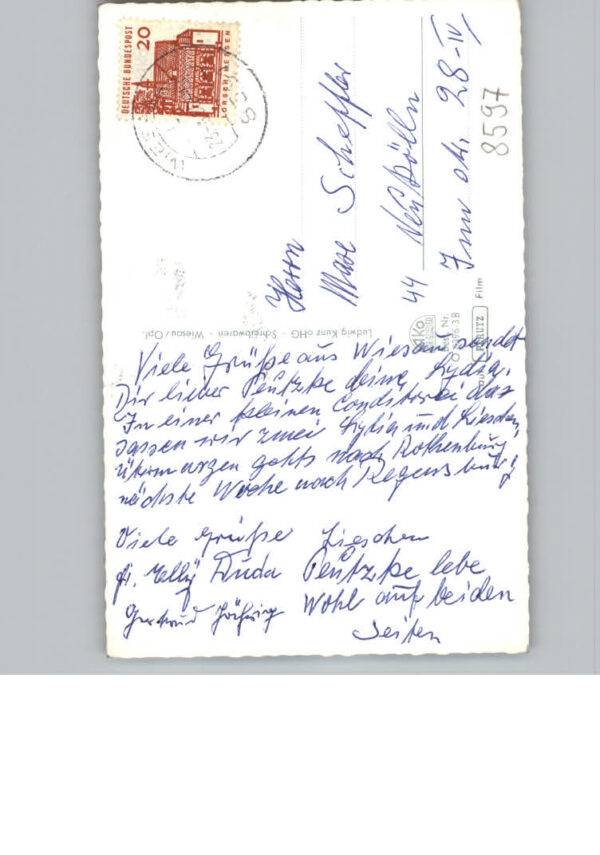 DEUTSCHE BUNDESPOST
20
LORSCH/HESSEN
Herrn
Maxe Scheffler
44
Im 28-IV
8597
Ludwig Kunz oHG - Schreibwaren - Wiesau/Opf.
PERUTZ
Film
Viele Grüße aus Wiesau sendet
Dir lieber Peützke deine Lydia.
In einer kleinen Conditorei das
sassen wir zwei Lydia und Lieschen,
übermorgen gehts nach Rothenburg
nächste Woche nach Regensburg!
Viele Grüße Lieschen
Duda Peützke lebe
Gertrud wohl auf beiden
Seiten